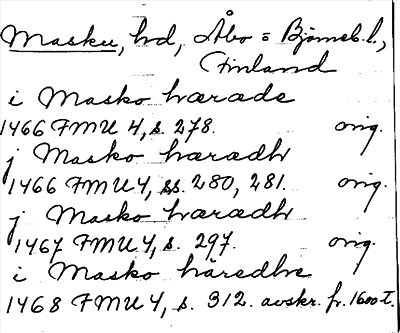 Masku, hd, Åbo = Björneb. l.,
Finland
i Masko hærade
1466 FMU 4, s. 278. orig.
j Masko haradh
1466 FMU 4, ss. 280, 281. orig.
j Masko haradh
1467 FMU 4, s. 297. orig.
i Masko häredhe
1468 FMU 4, s. 312. avskr. fr. 1600-t.